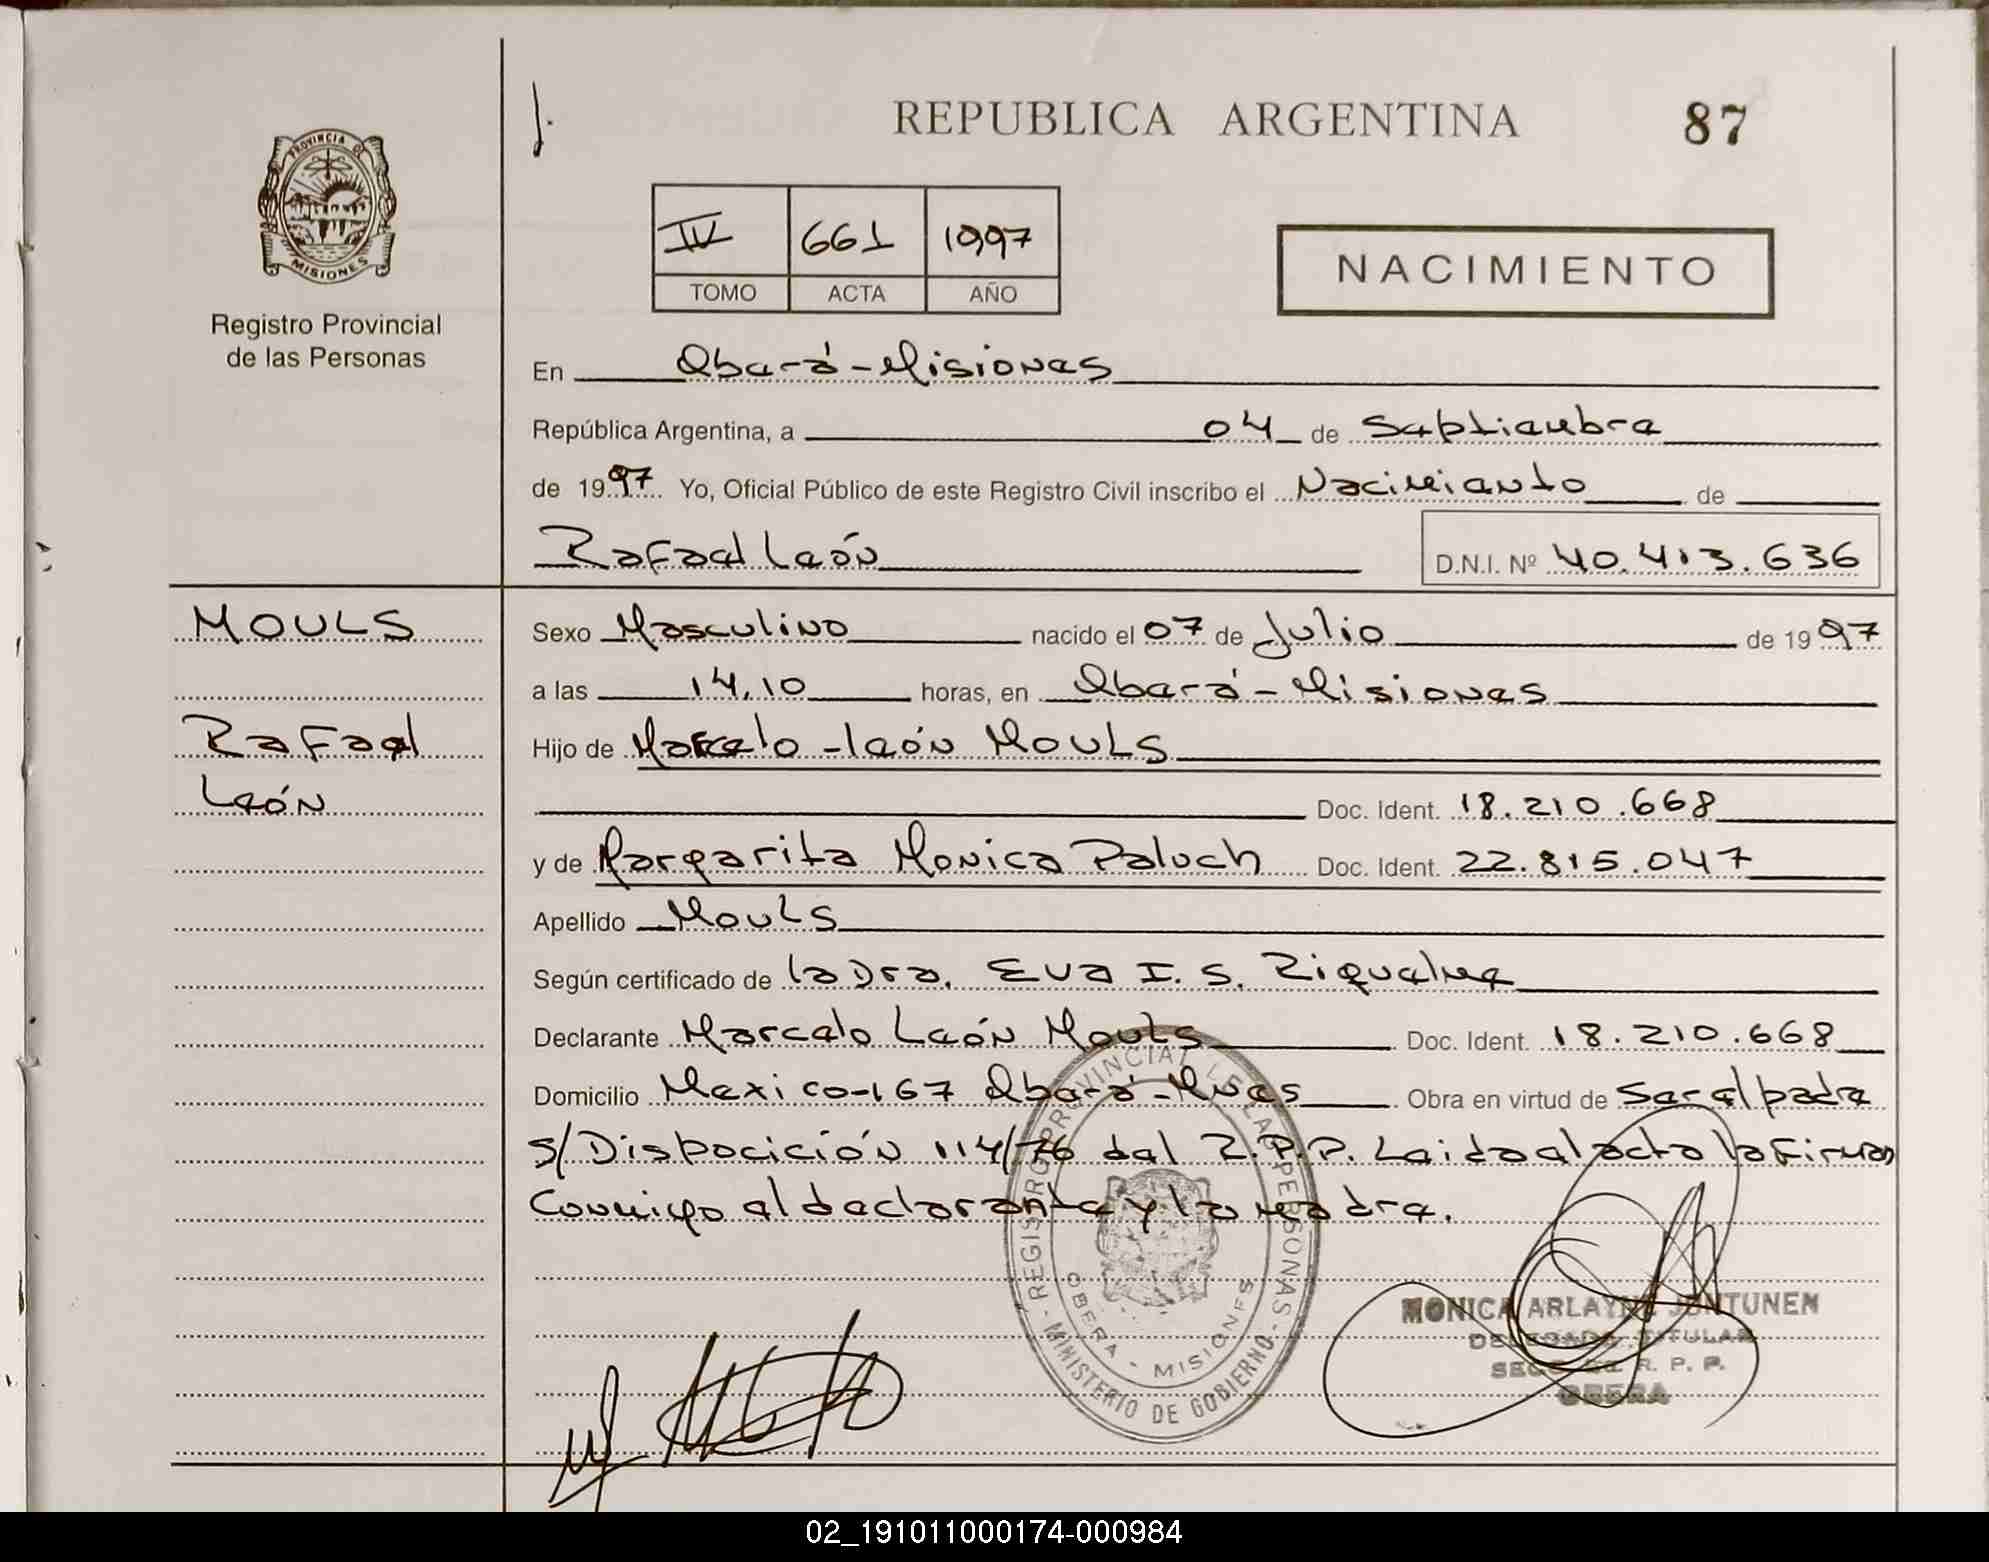 REPUBLICA ARGENTINA
87
PROVINCIA DE
MISIONES
Registro Provincial
de las Personas
IV 661 1997
TOMO ACTA AÑO
NACIMIENTO
En Oberá - Misiones
República Argentina, a 04 de Septiembre
de 1997 Yo, Oficial Público de este Registro Civil inscribo el Nacimiento de
Rafael León D.N.I. Nº 40.413.636
MOULS
Sexo Masculino nacido el 07 de Julio de 1997
a las 14,10 horas, en Oberá - Misiones
Rafael
Hijo de Marcelo - león MOULS
León
Doc. Ident. 18.210.668
y de Margarita Monica Paluch Doc. Ident. 22.815.047
Apellido Mouls
Según certificado de la Dra. Eva I. S.
Declarante Marcelo León Mouls Doc. Ident. 18.210.668
Domicilio Mexico-167 Oberá - Mnes Obra en virtud de Ser el padre
S/Disposición 114/76 del R.P.P. Leida el acta la firman
Conmigo el declarante y la madre.
REGISTRO PROVINCIAL DE LAS PERSONAS - MINISTERIO DE GOBIERNO -
OBERA - MISIONES
MONICA ARLAYNE JONTUNEN
DELEGADA TITULAR
R. P. P.
OBERA
02_191011000174-000984